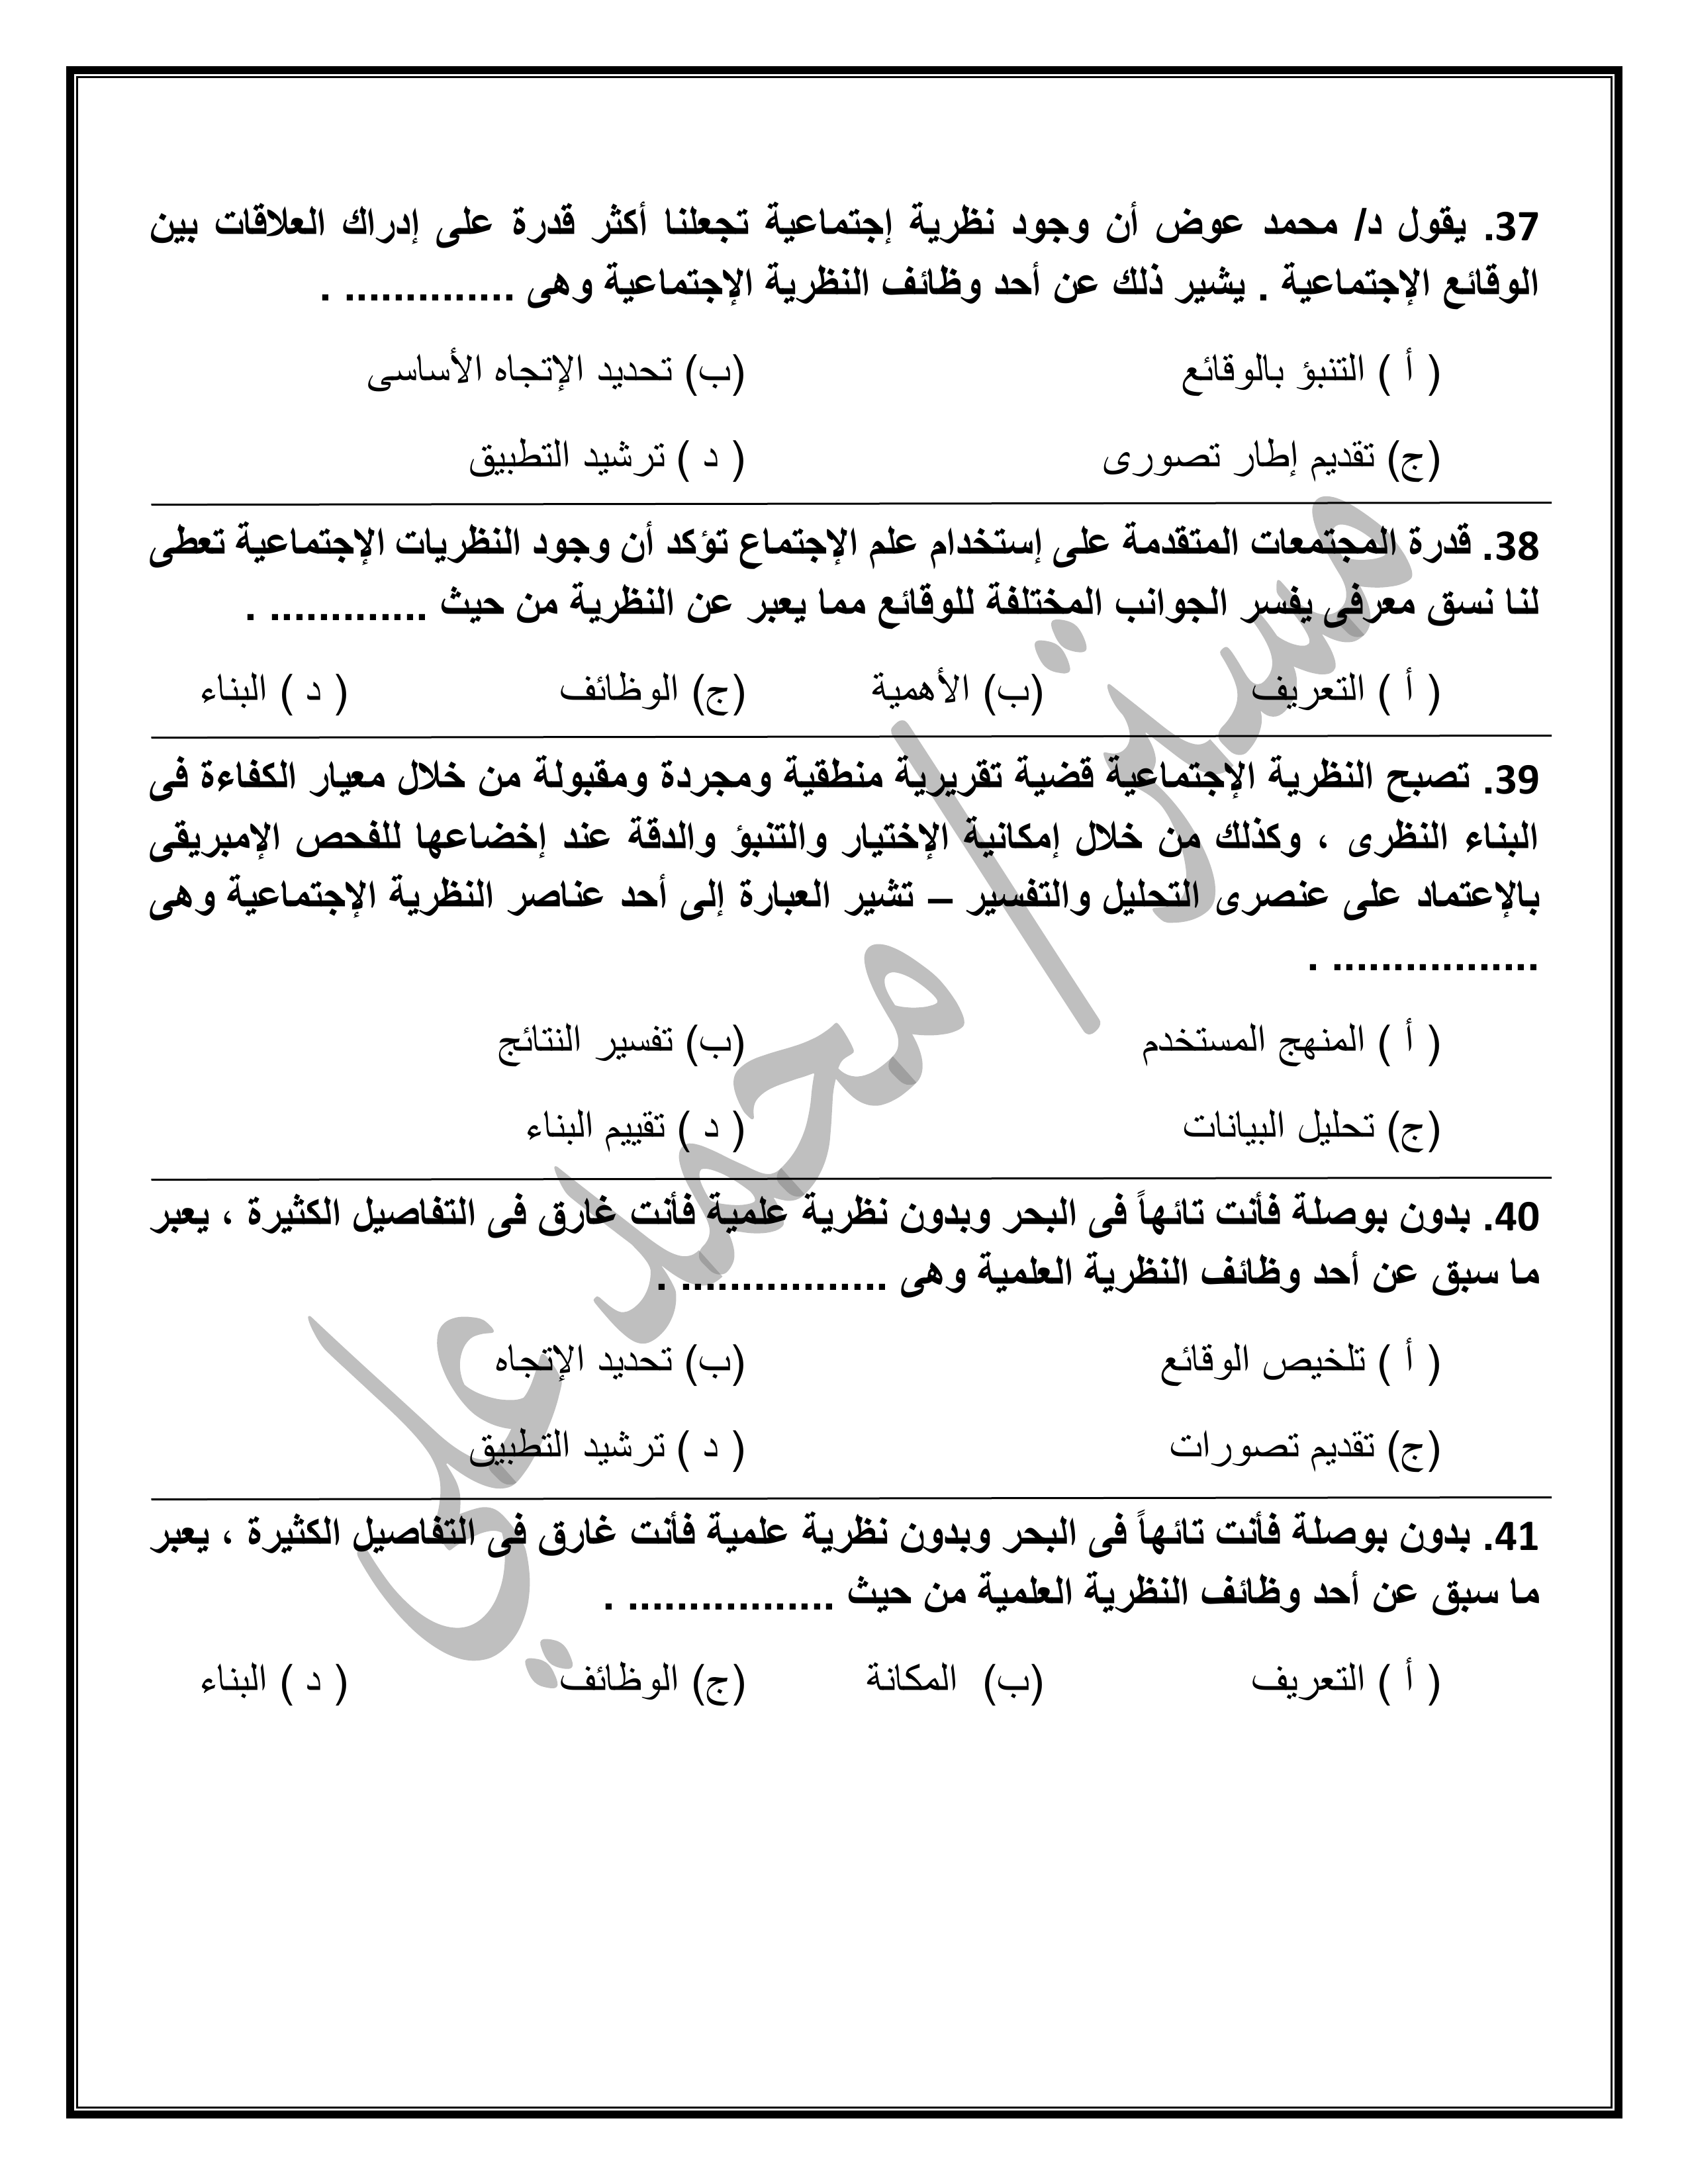 37. يقول د/ محمد عوض أن وجود نظرية إجتماعية تجعلنا أكثر قدرة على إدراك العلاقات بين
الوقائع الإجتماعية . يشير ذلك عن أحد وظائف النظرية الإجتماعية وهى .............. .
( أ ) التنبؤ بالوقائع (ب) تحديد الإتجاه الأساسى
(ج) تقديم إطار تصورى ( د ) ترشيد التطبيق
38. قدرة المجتمعات المتقدمة على إستخدام علم الإجتماع تؤكد أن وجود النظريات الإجتماعية تعطى
لنا نسق معرفى يفسر الجوانب المختلفة للوقائع مما يعبر عن النظرية من حيث ............. .
( أ ) التعريف (ب) الأهمية (ج) الوظائف ( د ) البناء
39. تصبح النظرية الإجتماعية قضية تقريرية منطقية ومجردة ومقبولة من خلال معيار الكفاءة فى
البناء النظرى ، وكذلك من خلال إمكانية الإختيار والتنبؤ والدقة عند إخضاعها للفحص الإمبريقى
بالإعتماد على عنصرى التحليل والتفسير – تشير العبارة إلى أحد عناصر النظرية الإجتماعية وهى
................. .
( أ ) المنهج المستخدم (ب) تفسير النتائج
(ج) تحليل البيانات ( د ) تقييم البناء
40. بدون بوصلة فأنت تائهاً فى البحر وبدون نظرية علمية فأنت غارق فى التفاصيل الكثيرة ، يعبر
ما سبق عن أحد وظائف النظرية العلمية وهى ................. .
( أ ) تلخيص الوقائع (ب) تحديد الإتجاه
(ج) تقديم تصورات ( د ) ترشيد التطبيق
41. بدون بوصلة فأنت تائهاً فى البحر وبدون نظرية علمية فأنت غارق فى التفاصيل الكثيرة ، يعبر
ما سبق عن أحد وظائف النظرية العلمية من حيث ................. .
( أ ) التعريف (ب) المكانة (ج) الوظائف ( د ) البناء
مستر/ محمد علي